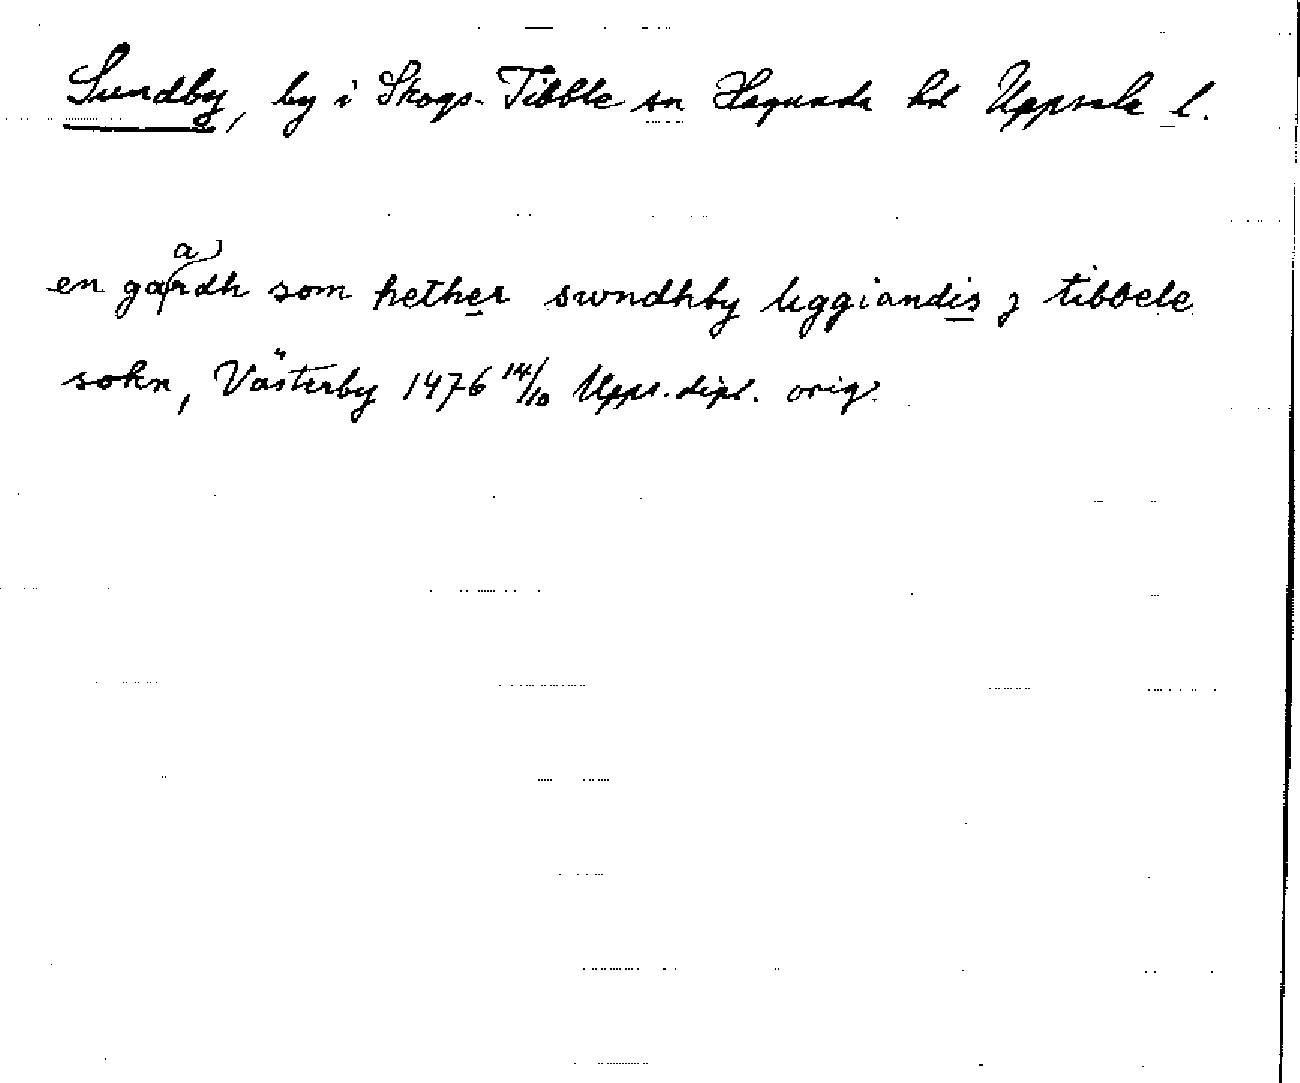 Sundby, by i Skogs-Tibble sn Hagunda hd Uppsala l.
en gaardh som hether swndhby liggiandis j tibbele
sokn, Västerby 1476 14/10 Upps. dipl. orig.